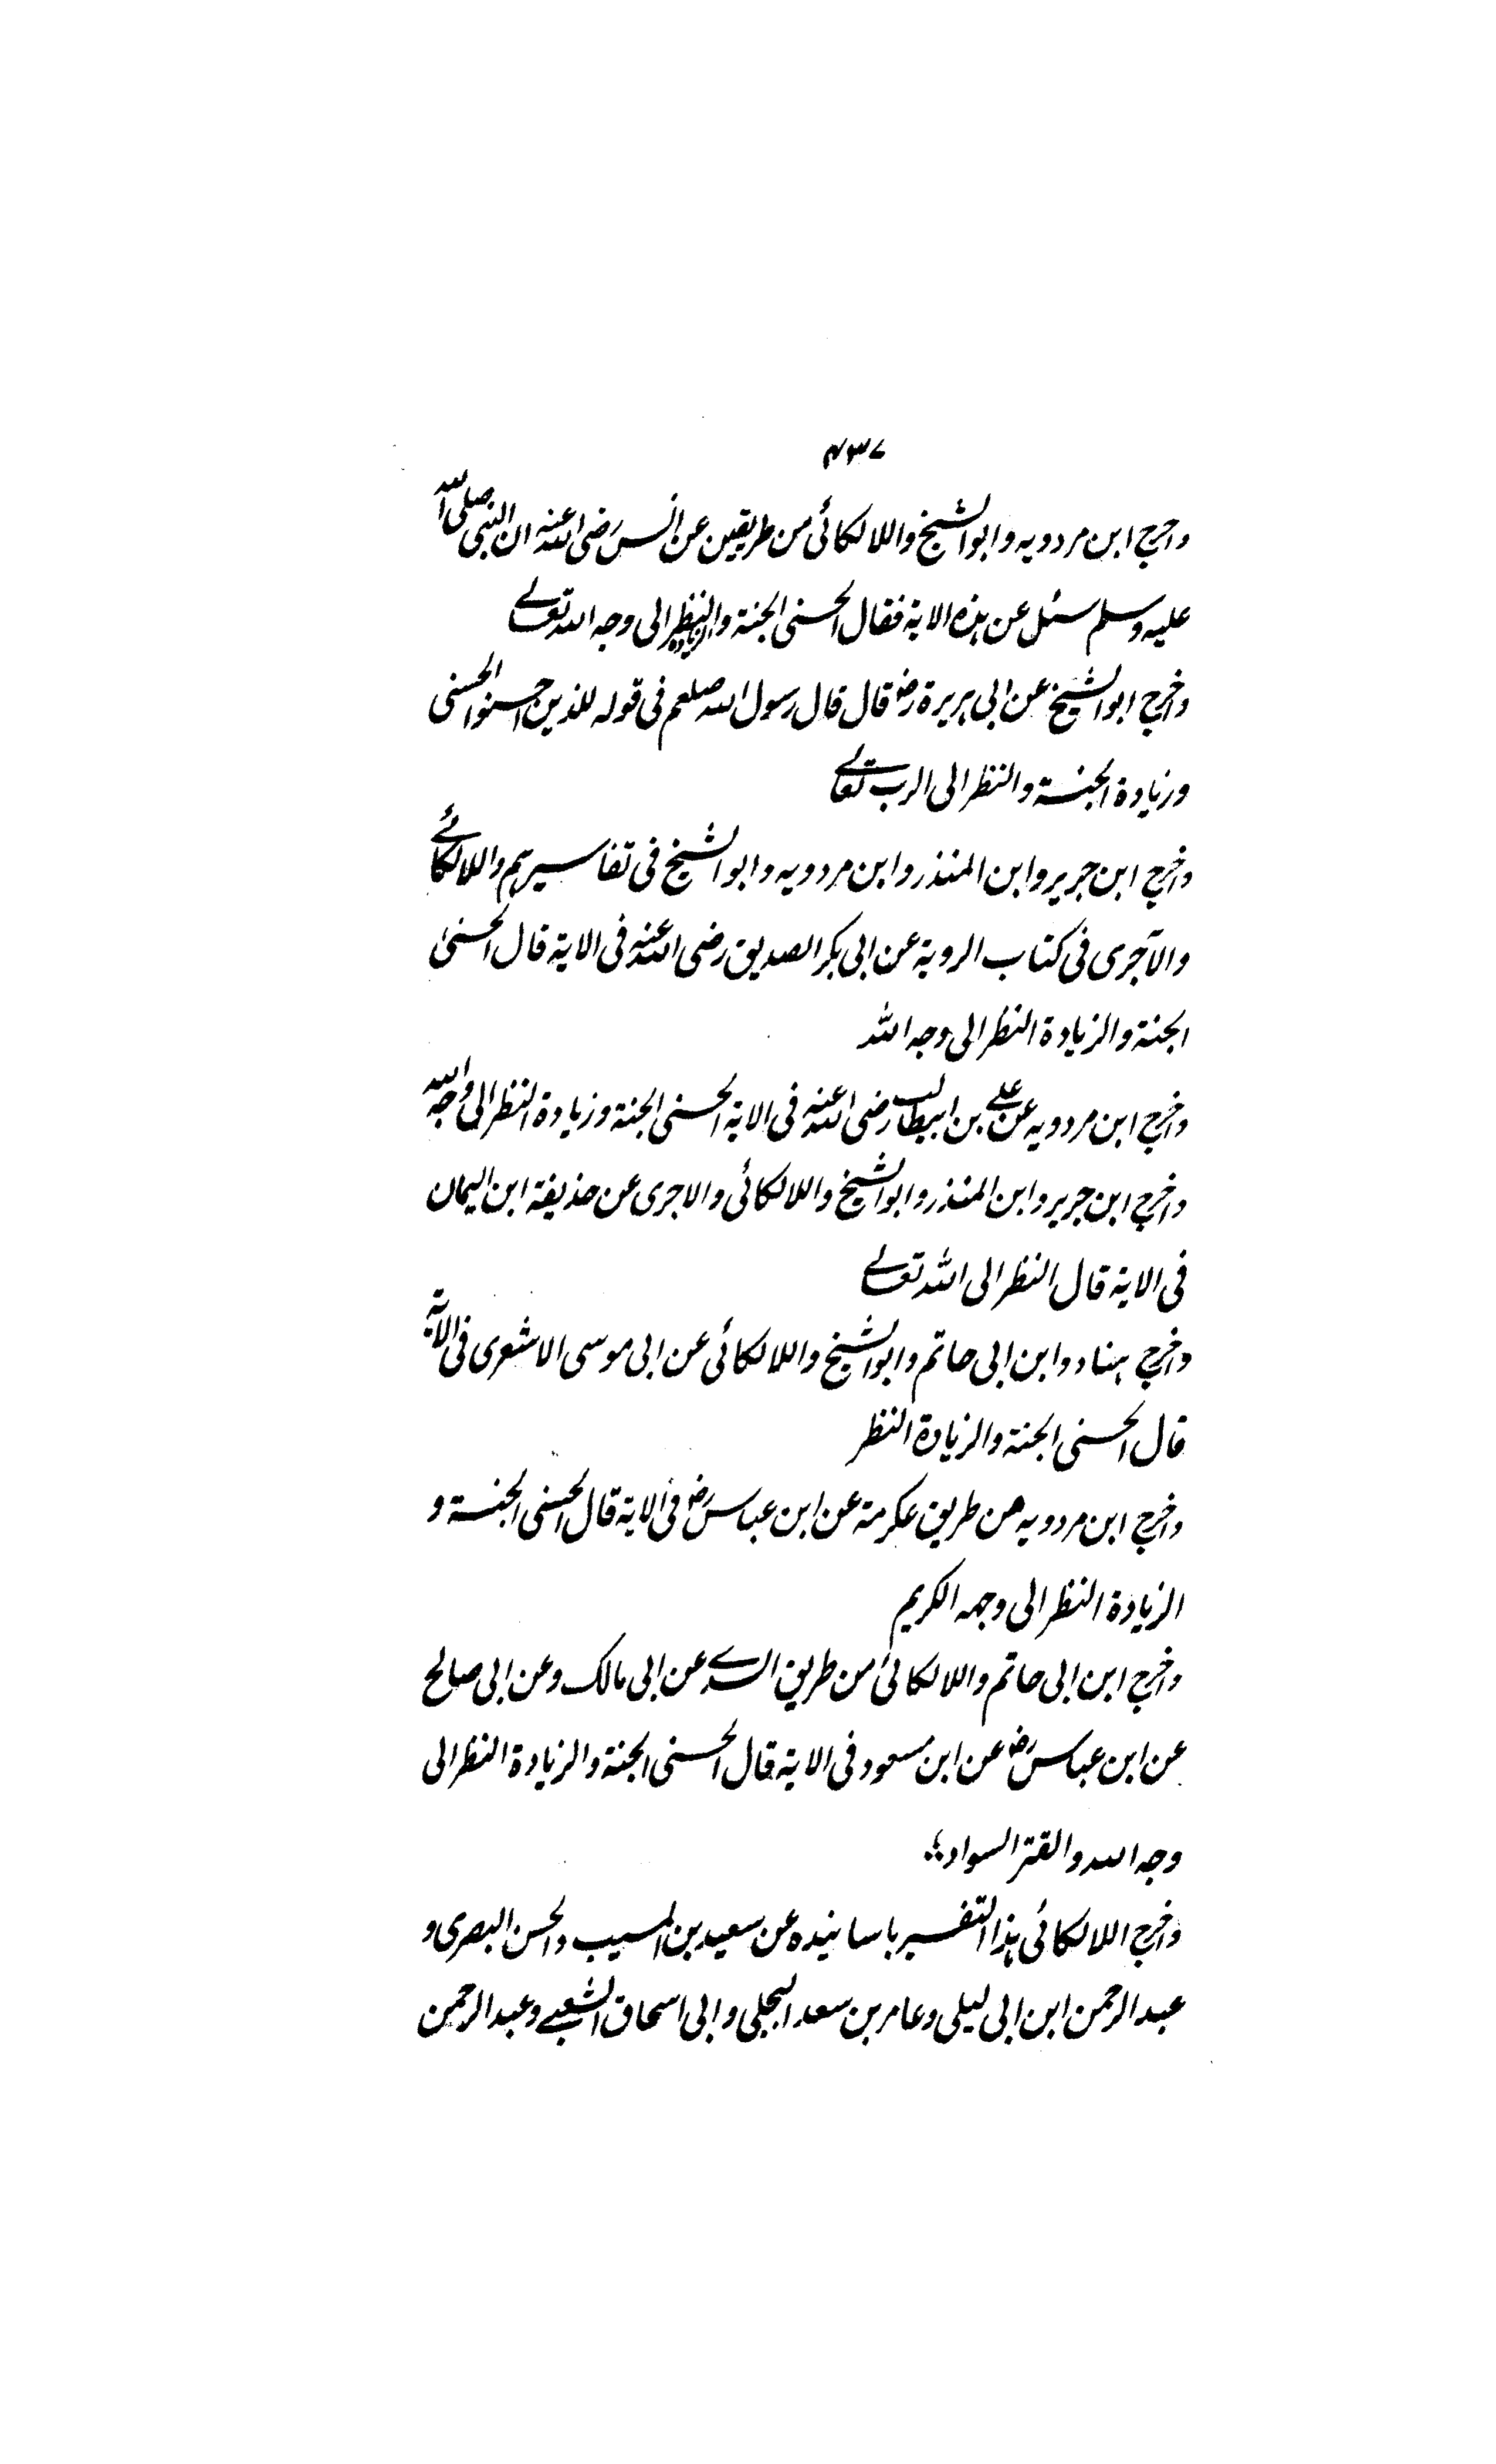 ۴۳۷
واخرج ابن مردویه وابوالشیخ واللالکائی من طریقین عن انس رضی الله عنه ان النبی صلی الله
علیه وسلم سئل عن هذه الایة فقال الحسنی الجنة والزیادة النظر الی وجه الله تعالے
واخرج ابوالشیخ عن ابی هریرة رض قال قال رسول الله صلعم فی قوله للذین احسنوا الحسنی
وزیادة الجنة والنظر الی الرب تعالے
واخرج ابن جریر وابن المنذر وابن مردویه وابوالشیخ فی تفاسیرهم واللالکائے
والآجری فی کتاب الرویة عن ابی بکر الصدیق رضی الله عنه فی الایة قال الحسنیٰ
الجنة والزیادة النظر الی وجه الله
واخرج ابن مردویه عن علے بن ابیطالب رضی الله عنه فی الایة الحسنی الجنة وزیادة النظر الی وجه الله
واخرج ابن جریر وابن المنذر وابوالشیخ واللالکائی والاجری عن حذیفة ابن الیمان
فی الایة قال النظر الی الله تعالے
واخرج هناد وابن ابی حاتم وابوالشیخ واللالکائی عن ابی موسی الاشعری فی الایة
قال الحسنی الجنة والزیادة النظر
واخرج ابن مردویه من طریق عکرمة عن ابن عباس رض فی الایة قال الحسنی الجنة و
الزیادة النظر الی وجهه الکریم
واخرج ابن ابی حاتم واللالکائی من طریق السدے عن ابی مالک وعن ابی صالح
عن ابن عباس رض عن ابن مسعود فی الایة قال الحسنی الجنة والزیادة النظر الی
وجه الله والقتر السواد؛
واخرج اللالکائی هذا التفسیر باسانیده عن سعید بن المسیب والحسن البصری و
عبدالرحمن ابن ابی لیلی وعامر بن سعد البجلی وابی اسحاق الشعبے وعبدالرحمن